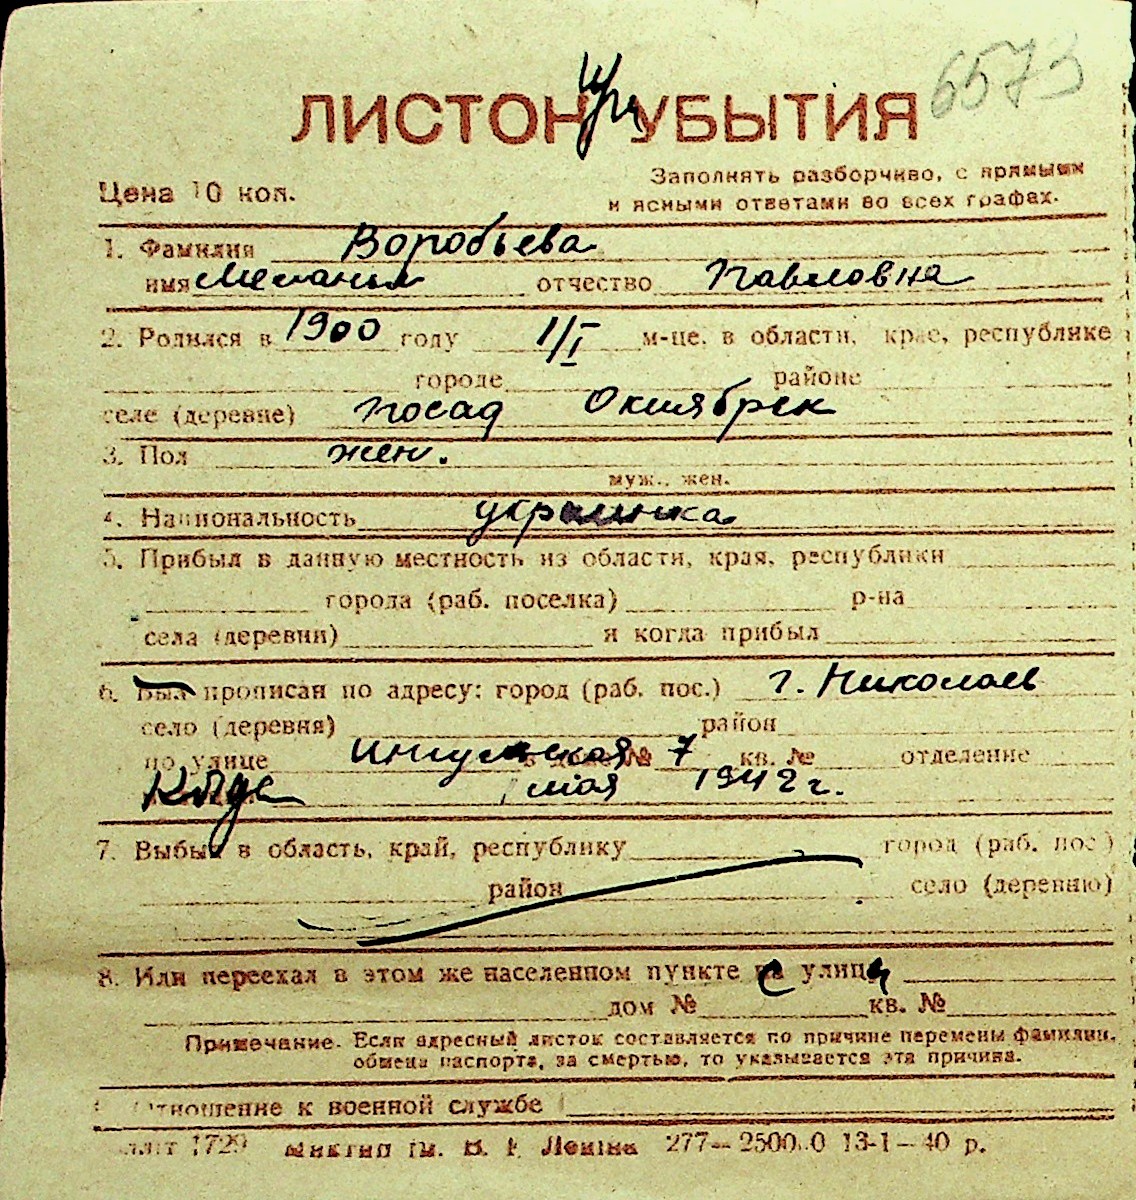 6573
ЛИСТОК при УБЫТИЯ
Цена 10 коп.
Заполнять разборчиво, с прямыми
и ясными ответами во всех графах.
1. Фамилия Воробьева
имя Мелания отчество Павловна
2. Родился в 1900 году 1/I м-це, в области, крае, республике
городе районе
селе (деревне) посад Октябрск
3. Пол жен.
муж., жен.
4. Национальность украинка
5. Прибыл в данную местность из области, края, республики
города (раб. поселка) р-на
села (деревни) и когда прибыл
6. Был прописан по адресу: город (раб. пос.) г. Николаев
село (деревня) район
по улице Ингульская дом № 7 кв. № отделение
мая 1942 г.
7. Выбыл в область, край, республику город (раб. пос.)
район село (деревню)
8. Или переехал в этом же населенном пункте с улицы
дом № кв. №
Примечание. Если адресный листок составляется по причине перемены фамилии,
обмена паспорта, за смертью, то указывается эта причина.
Отношение к военной службе
1729 им. В. І. Леніна 277— 13-1—40 р.